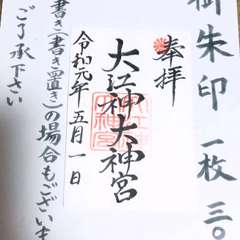 御朱印 一枚 三〇
奉拝
大江神大神宮
令和元年五月一日
書き(書き置き)の場合もございま
ご了承下さい